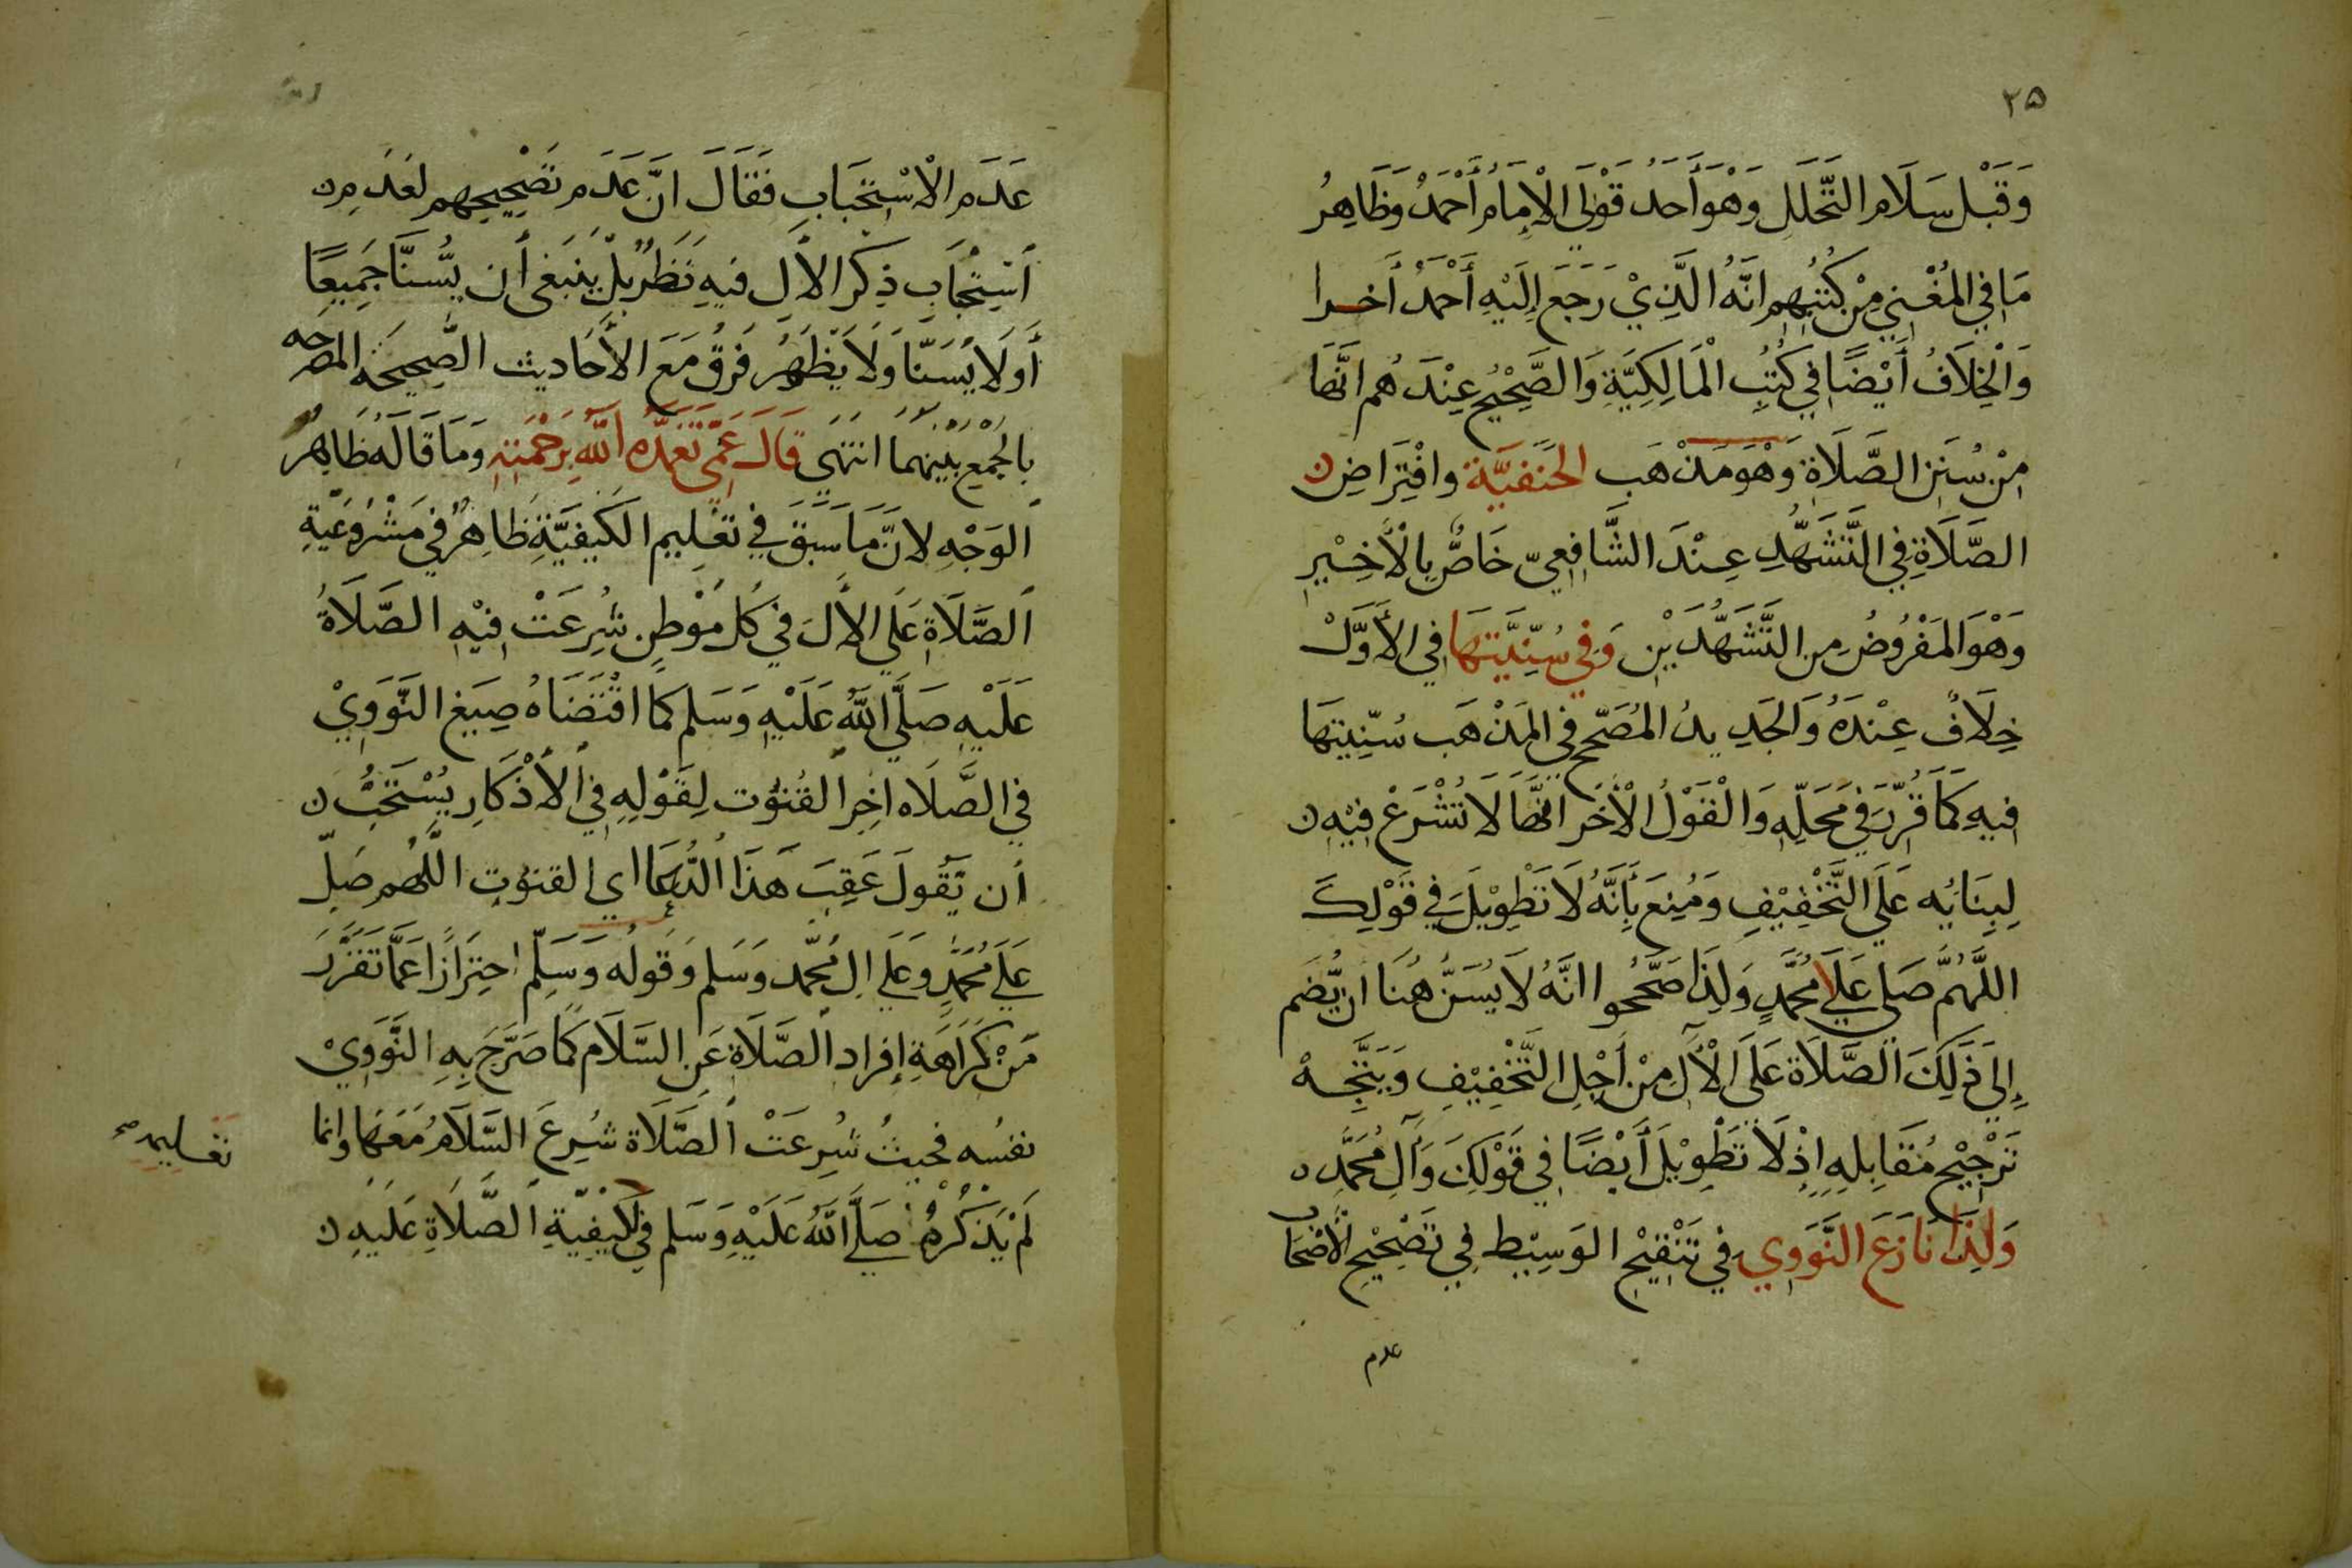 ٢٥
وَقَبْل سَلَام التَّحَلَل وَهْوَ أَحَدُ قَوْلَي الْإِمَامُ أَحْمَدُ وَظَاهِرُ
مَا فِي المُغْنِي مِنْ كُتُبِهِم انَّهُ الَّذِيْ رَجَعَ إِلَيْهِ أَحْمَدُ أَخرا
وَالْخِلَافُ أَيْضًا فِي كُتُبِ الْمَالِكِيَّةِ وَالصَّحِيْحُ عِنْدَهُم انَّهَا
مِنْ سُنَنِ الصَّلَاةِ وَهْوَ مَذْهَب الحَنَفِيَّة وافْتِرَاضِ
الصَّلَاةِ فِي التَّشَهُّدِ عِنْدَ الشَّافِعِيّ خَاصٌّ بِالْأَخِيْرِ
وَهْوَ المَفْرُوضُ مِن التَّشَهُّدَيْنِ وَفِي سُنِّيَّتِهَا فِي الأَوَّلْ
خِلَافٌ عِنْدَهُ وَالجَدِيدُ المُصَحّح فِي المَذْهَب سُنِّيتِهَا
فِيهِ كَمَا قُرِّرَ فِي مَحَلِّهِ وَالْقَوْلُ الْأَخَر انَّهَا لَا تُشْرَعْ فِيْهِ
لِبِنَائِه عَلَي التَّخْفِيْفِ وَمُنِعَ بِأَنَّهُ لَا تَطْوِيْلَ فِي قَوْلِكَ
اللَّهُمَّ صَلِي عَلَي مُحَمَّدٍ وَلِذَا صَحَّحُوا انَّهُ لَا يُسَنُّ هُنَا ان يُّضَم
إِلَي ذَلِكَ الصَّلَاةِ عَلَى الْآلِ مِنْ أَجْلِ التَّخْفِيْفِ وَيَتَّجِهْ
تَرْجِيْح مُقَابِلِهِ إِذْ لَا تَطْوِيْلَ أَيْضًا فِي قَوْلِكَ وَآلِ مُحَمَّد
وَلِذَا نَازَعَ النَّوَوِي فِي تَنْقِيْحِ الوَسِيْط فِي تَصْحِيْحِ الْأَصْحَاب
عدم
عَدَم الْاسْتِحْبَابِ فَقَالَ انَّ عَدَم تَصْحِيحِهم لعَدَمِ
اسْتِحْبَابِ ذِكَر الأَلِ فيهِ نَظَرٌ بَلْ يَنبَغى أن يُّسَنَّا جَمِيعًا
أَو لَا يُسَنَّا وَلَا يَظْهَرُ فَرقٌ مَعَ الأَحَاديث الصَّحِيحَة المصرحه
بِالجْمعِ بَيْنهمَا انتهَى قَالَ عَمِّى تَغَمَّدَهُ اللّٰهُ بِرَحْمَتِهِ وَمَا قَالَهُ ظَاهِرُ
الوَجْهِ لانَّ مَا سَبَقَ فِي تعْلِيم الكَيفِيَّةِ ظَاهِرٌ فِي مَشْرُوعِيَّةِ
الصَّلَاةِ عَلَي الأَلَ فِي كُل مَوْطِنٍ شُرِعَتْ فِيْهِ الصَّلَاةُ
عَلَيْهِ صَلَّي اللّٰهُ عَلَيْهِ وَسَلم كَمَا اقْتَضَاهُ صِيَغ النَّوَوِيْ
فِي الصَّلَاه اخِرِ القُنوُت لِقَوْلِهِ فِي الْأَذْكَارِ يُسْتَحَبُّ
أن يَّقُولَ عَقِبَ هَذَا الدُّعَا اي القنوت اللَّهُم صَلِّ
عَلَي مُحَمَّدٍ وعَلَي الِ مُحَمَّد وَسَلم وَقولُه وَسَلِّم احتِرَازًا عَمَّا تَقَرَّرَ
مَنْ كَرَاهَةِ إِفراد الصَّلَاةِ عَنِ السَّلَام كمَا صَرَّحَ بِهِ النَّوَوِيْ
نفسُه فحيثُ شُرِعَتْ الصَّلَاة شُرِعَ السَّلَامُ مَعَهَا وانما
لَمْ يَذْكُرهُ صَلَّي اللّٰهُ عَلَيْهِ وَسَلم فِي كَيْفِيَّةِ الصَّلَاةِ عَلَيهِ
تعليمه